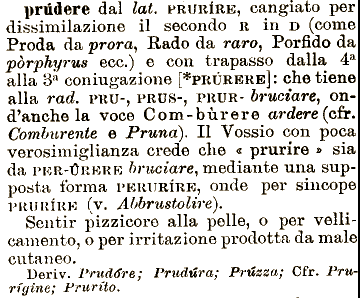 prúdere dal lat. PRURÍRE, cangiato per
dissimilazione il secondo R in D (come
Proda da prora, Rado da raro, Porfido da
pòrphyrus ecc.) e con trapasso dalla 4ª
alla 3ª coniugazione [*PRÚRERE]: che tiene
alla rad. PRU-, PRUS-, PRUR- bruciare, on-
d'anche la voce Com-bùrere ardere (cfr.
Comburente e Pruna). Il Vossio con poca
verosimiglianza crede che « prurire » sia
da PER-ÚRERE bruciare, mediante una sup-
posta forma PERURÍRE, onde per sincope
PRURÍRE (v. Abbrustolire).
Sentir pizzicore alla pelle, o per velli-
camento, o per irritazione prodotta da male
cutaneo.
Deriv. Prudóre; Prudúra; Prúzza; Cfr. Pru-
rígine; Prurito.